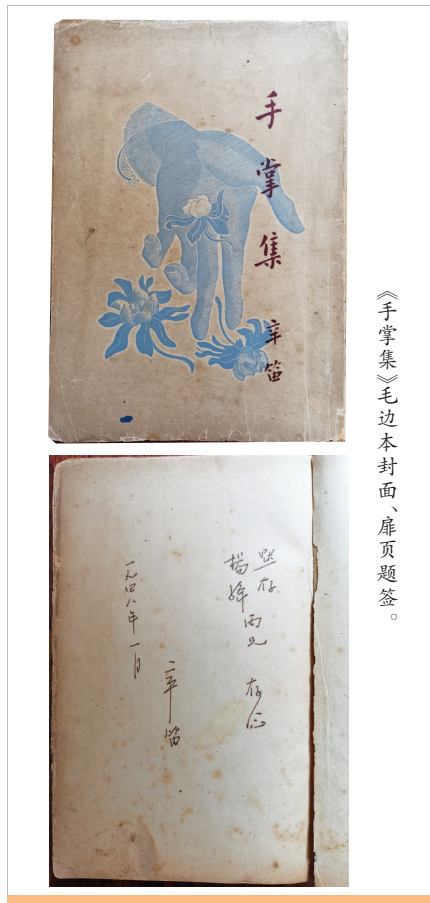 手掌集
辛笛
默存
楊絳
兩兄 存
辛笛
一九四八年一月
《手掌集》毛边本封面、扉页题签。